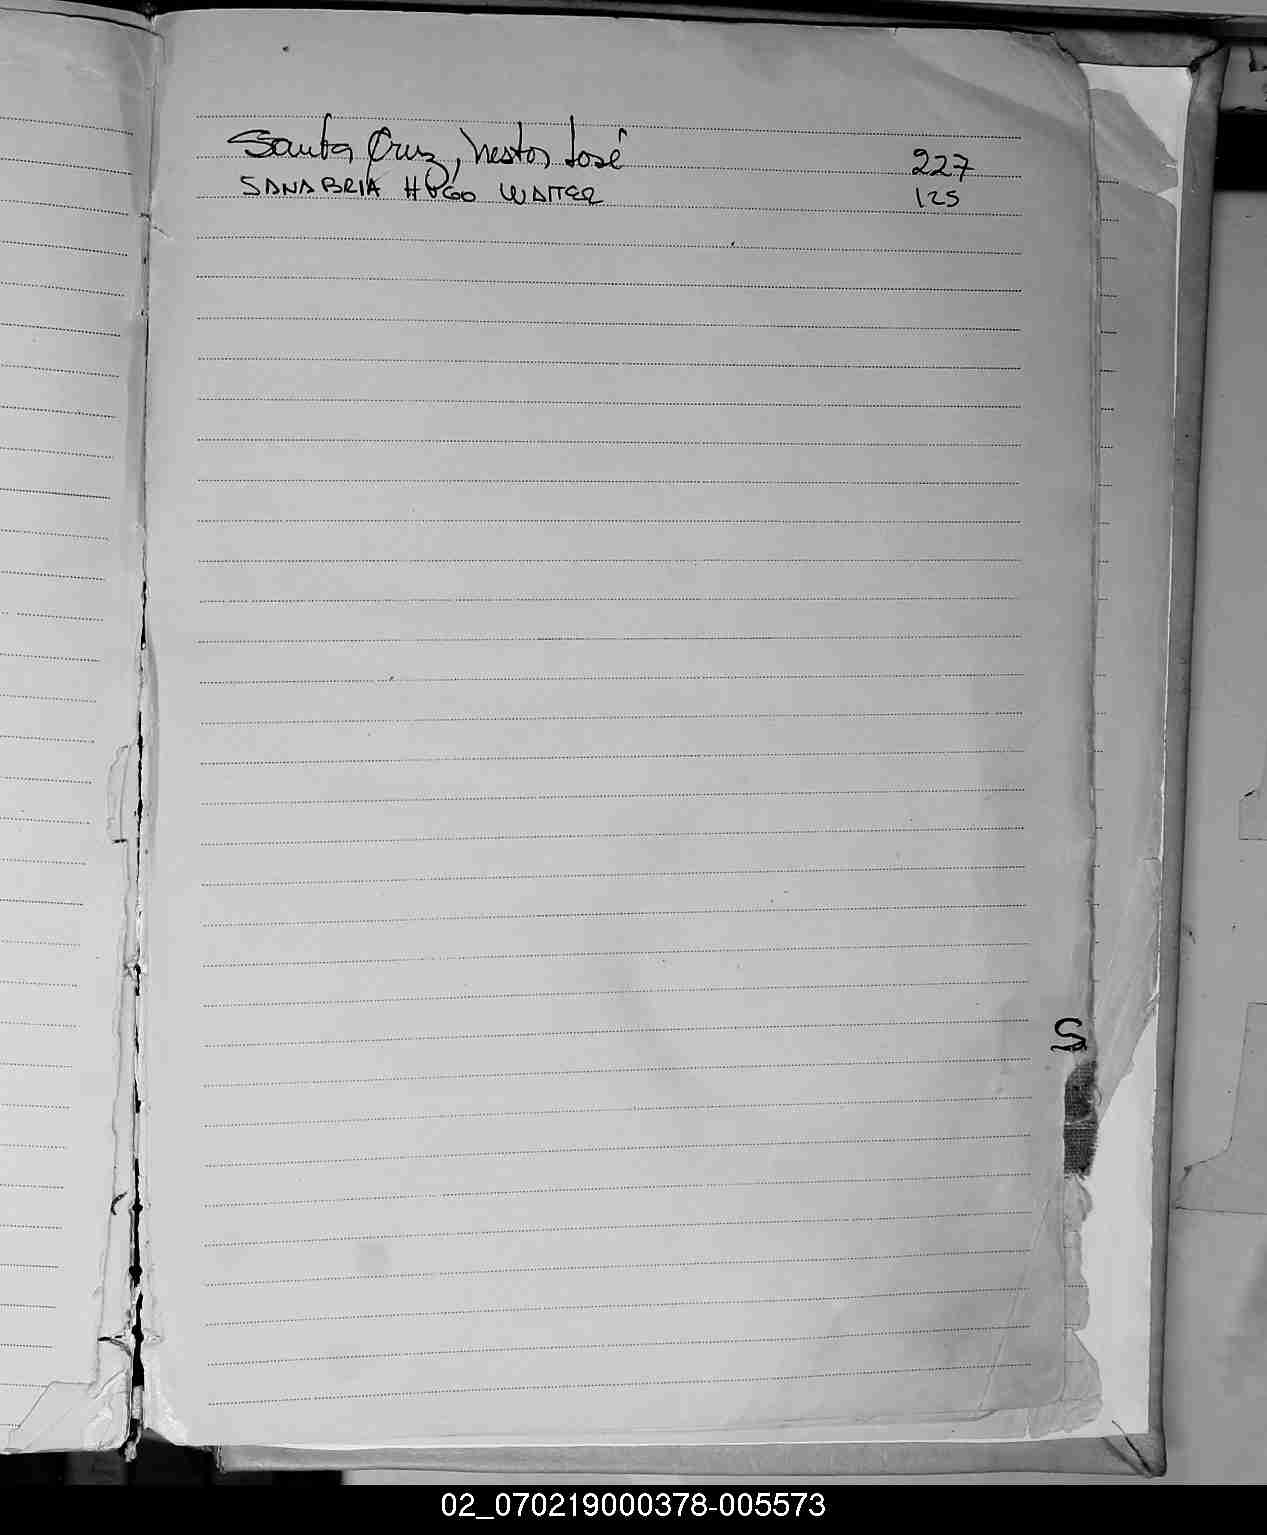 Santa Cruz, Nestor José 227
SANABRIA HUGO WALTER 125
S
02_070219000378-005573